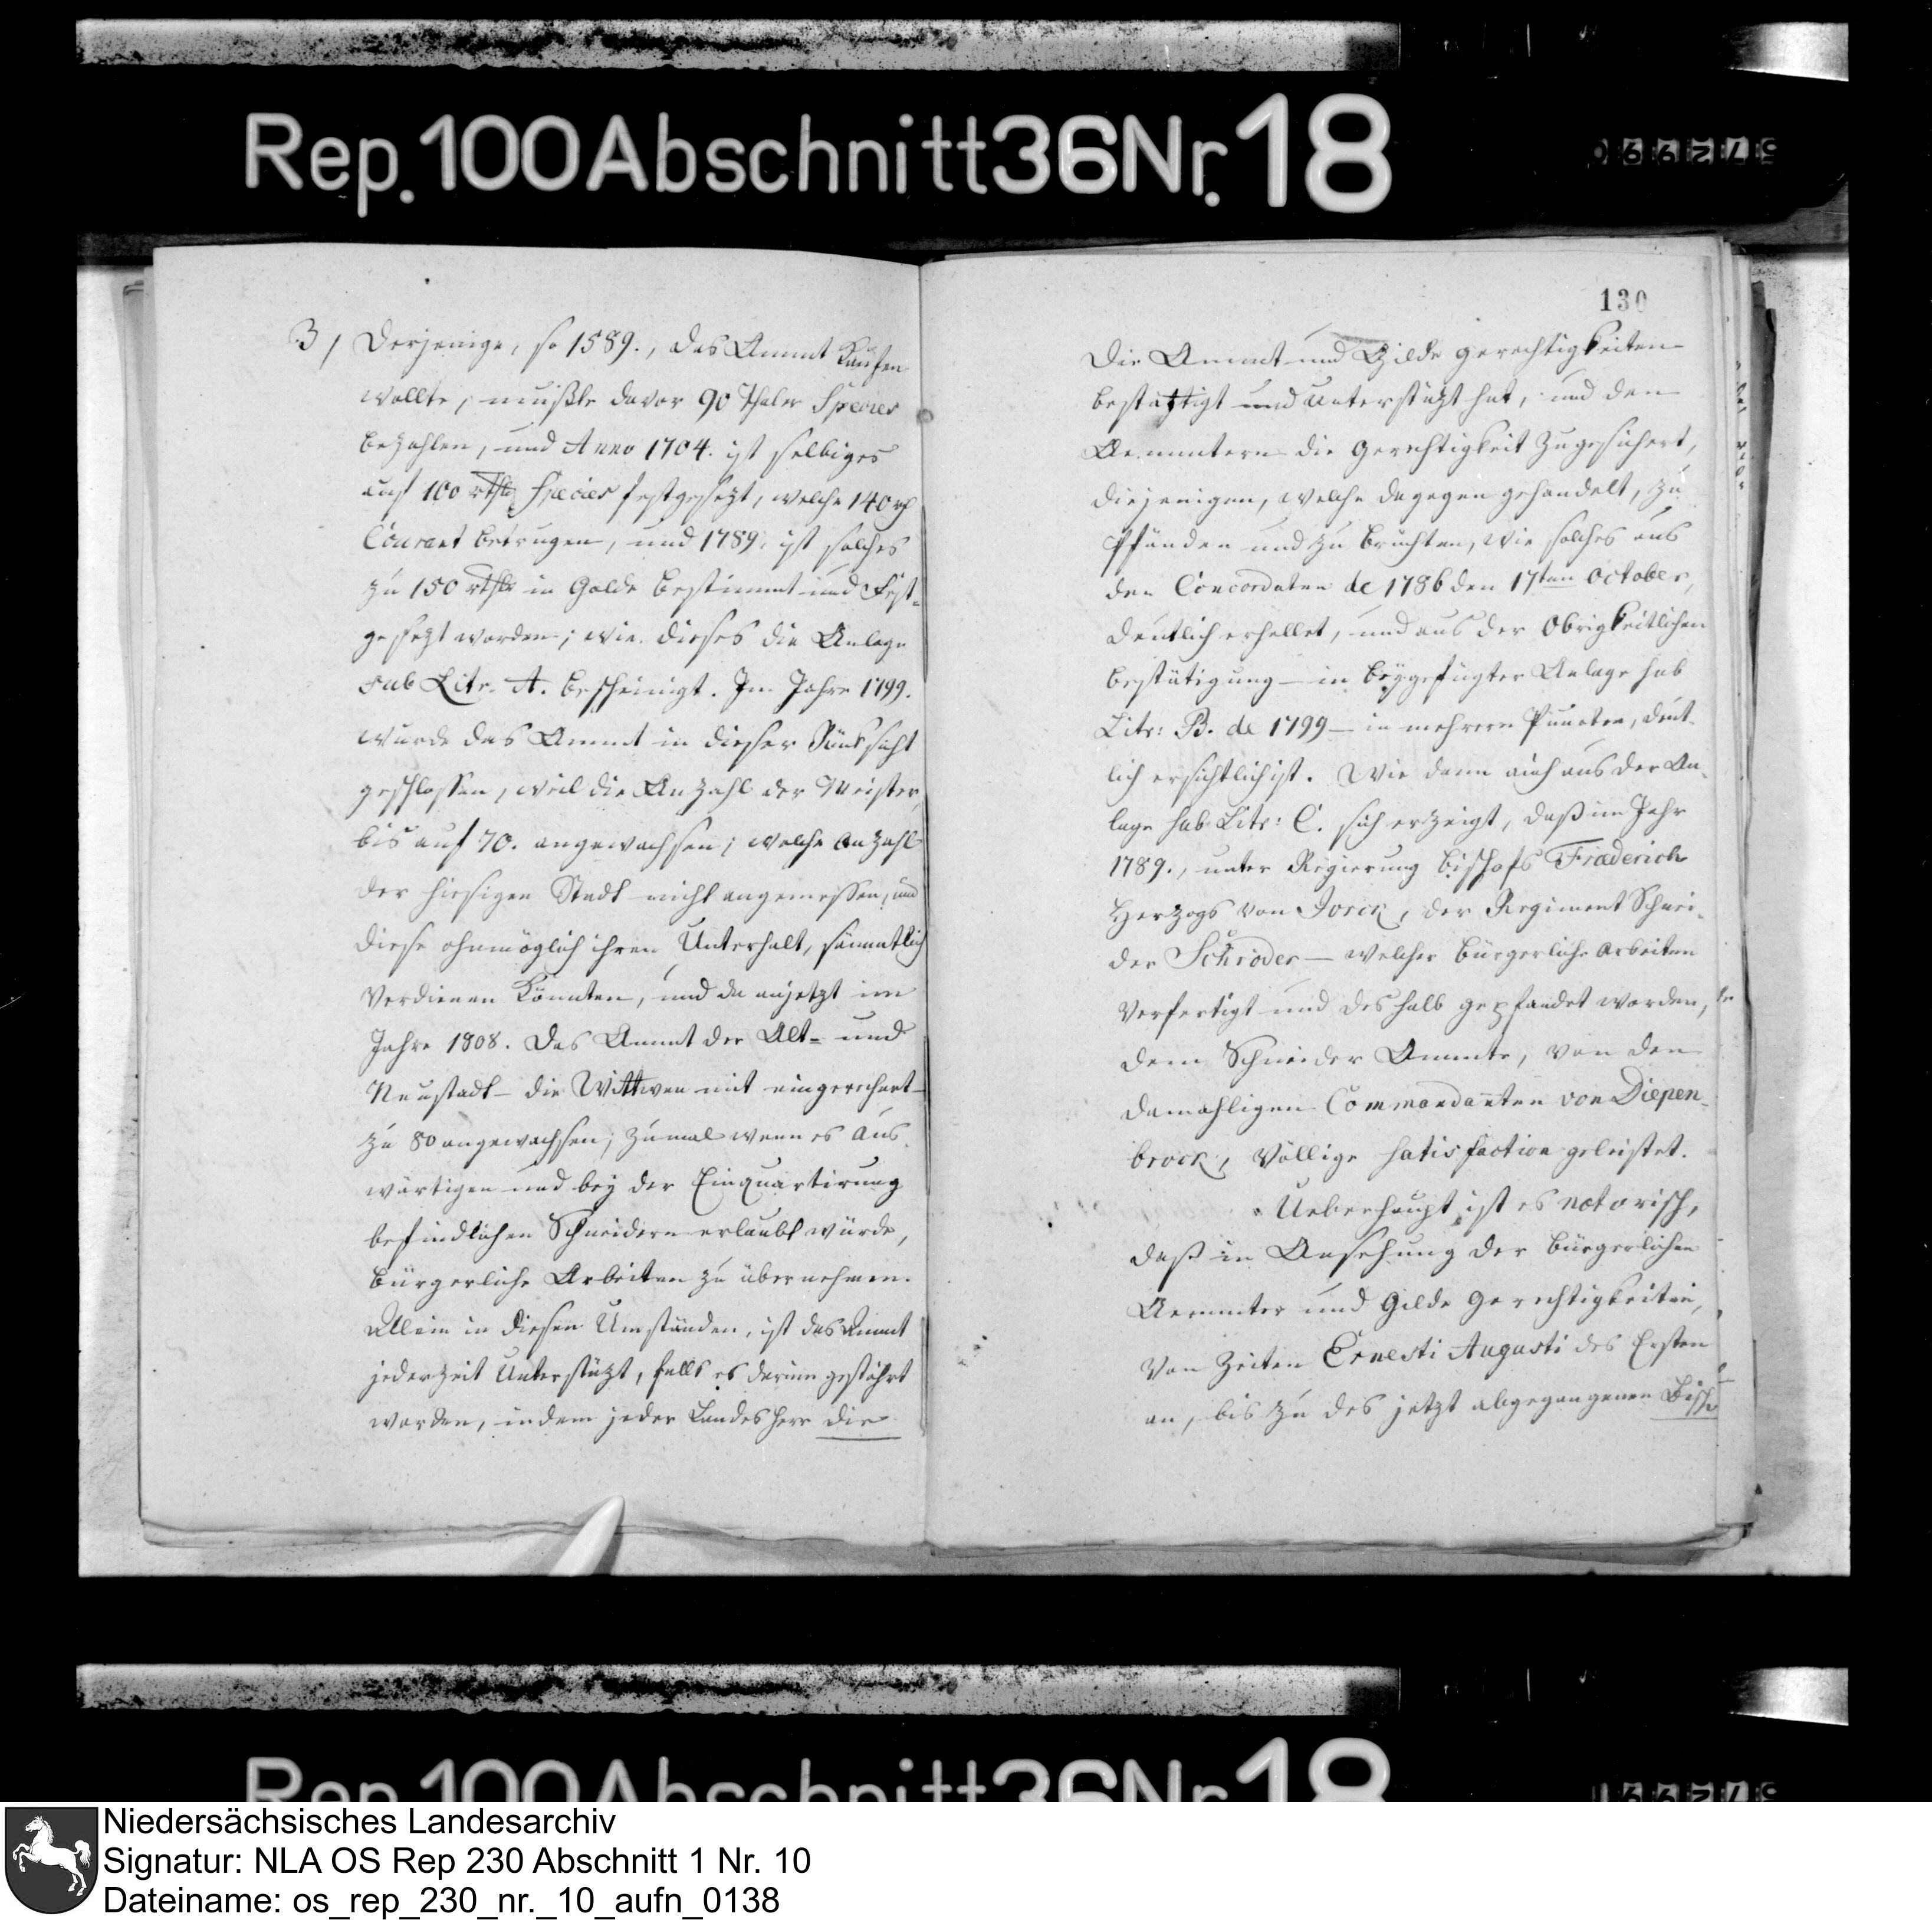 Rep. 100 Abschnitt 36 Nr. 18
3/ Derjenige, so 1589., das Ammt Kaufen
wollte, mußte davor 90 Thaler Species
bezahlen, und Anno 1704. ist selbiges
auf 100 rthlr Species festgesezt, welche 140 rth
Courant betrugen, und 1789. ist solches
zu 150 rthlr in Golde bestimmt und Fest-
gesezt worden; wie dieses die Anlage
sub Litr. A. bescheinigt. Im Jahre 1799.
wurde das Ammt in dieser Rücksicht
geschlossen, weil die Anzahl der Meister,
bis auf 70. angewachsen; welche Anzahl
der hiesigen Stadt nicht angemessen, und
diese ohnmöglich ihren Unterhalt, sämmtlich
Verdienen Könnten, und da anjetzt im
Jahre 1808. Das Ammt der Alt- und
Neustadt – die Wittwen mit eingerechnet –
zu 80 angewachsen; zumal wenn es Aus-
wärtigen und bey der Einquartirung
befindlichen Schneidern erlaubt würde,
bürgerliche Arbeiten zu übernehmen.
Allein in diesen Umständen, ist das Ammt
jederzeit Unterstüzt, falls es darinn gestöhrt
worden, indem jeder Landesherr die
130
Die Ammt und Gilde Gerechtigkeiten
bestättigt und Unterstüzt hat, und den
Aemmtern die Gerechtigkeit zugesichert,
diejenigen, welche dagegen gehandelt, zu
Pfänden und zu brüchten, wie solches aus
den Concordaten de 1786 den 17ten October,
deutlich erhellet, und aus der Obrigkeitlichen
bestätigung – in beygefügter Anlage sub
Litr: B. de 1799 – in mehrern Puncten, deut-
lich ersichtlich ist. Wie denn auch aus der An-
lage sub Litr: C. sich erzeigt, daß im Jahr
1789., unter Regierung Bischofs Friederich
Herzogs von Jorck, der Regiment Schnei-
der Schröder – welcher bürgerliche Arbeiten
Verfertigt und deshalb gepfandet worden,
dem Schneider Ammte, von den
damahligen Commandanten von Diepen-
brock, Völlige satisfaction geleistet.
Ueberhaupt ist es notorisch,
daß in Ansehung der bürgerlichen
Aemmter und Gilde Gerechtigkeiten,
Von Zeiten Ernesti Augusti des Ersten
an, bis zu des jetzt abgegangenen Bisch
Niedersächsisches Landesarchiv
Signatur: NLA OS Rep 230 Abschnitt 1 Nr. 10
Dateiname: os_rep_230_nr._10_aufn_0138